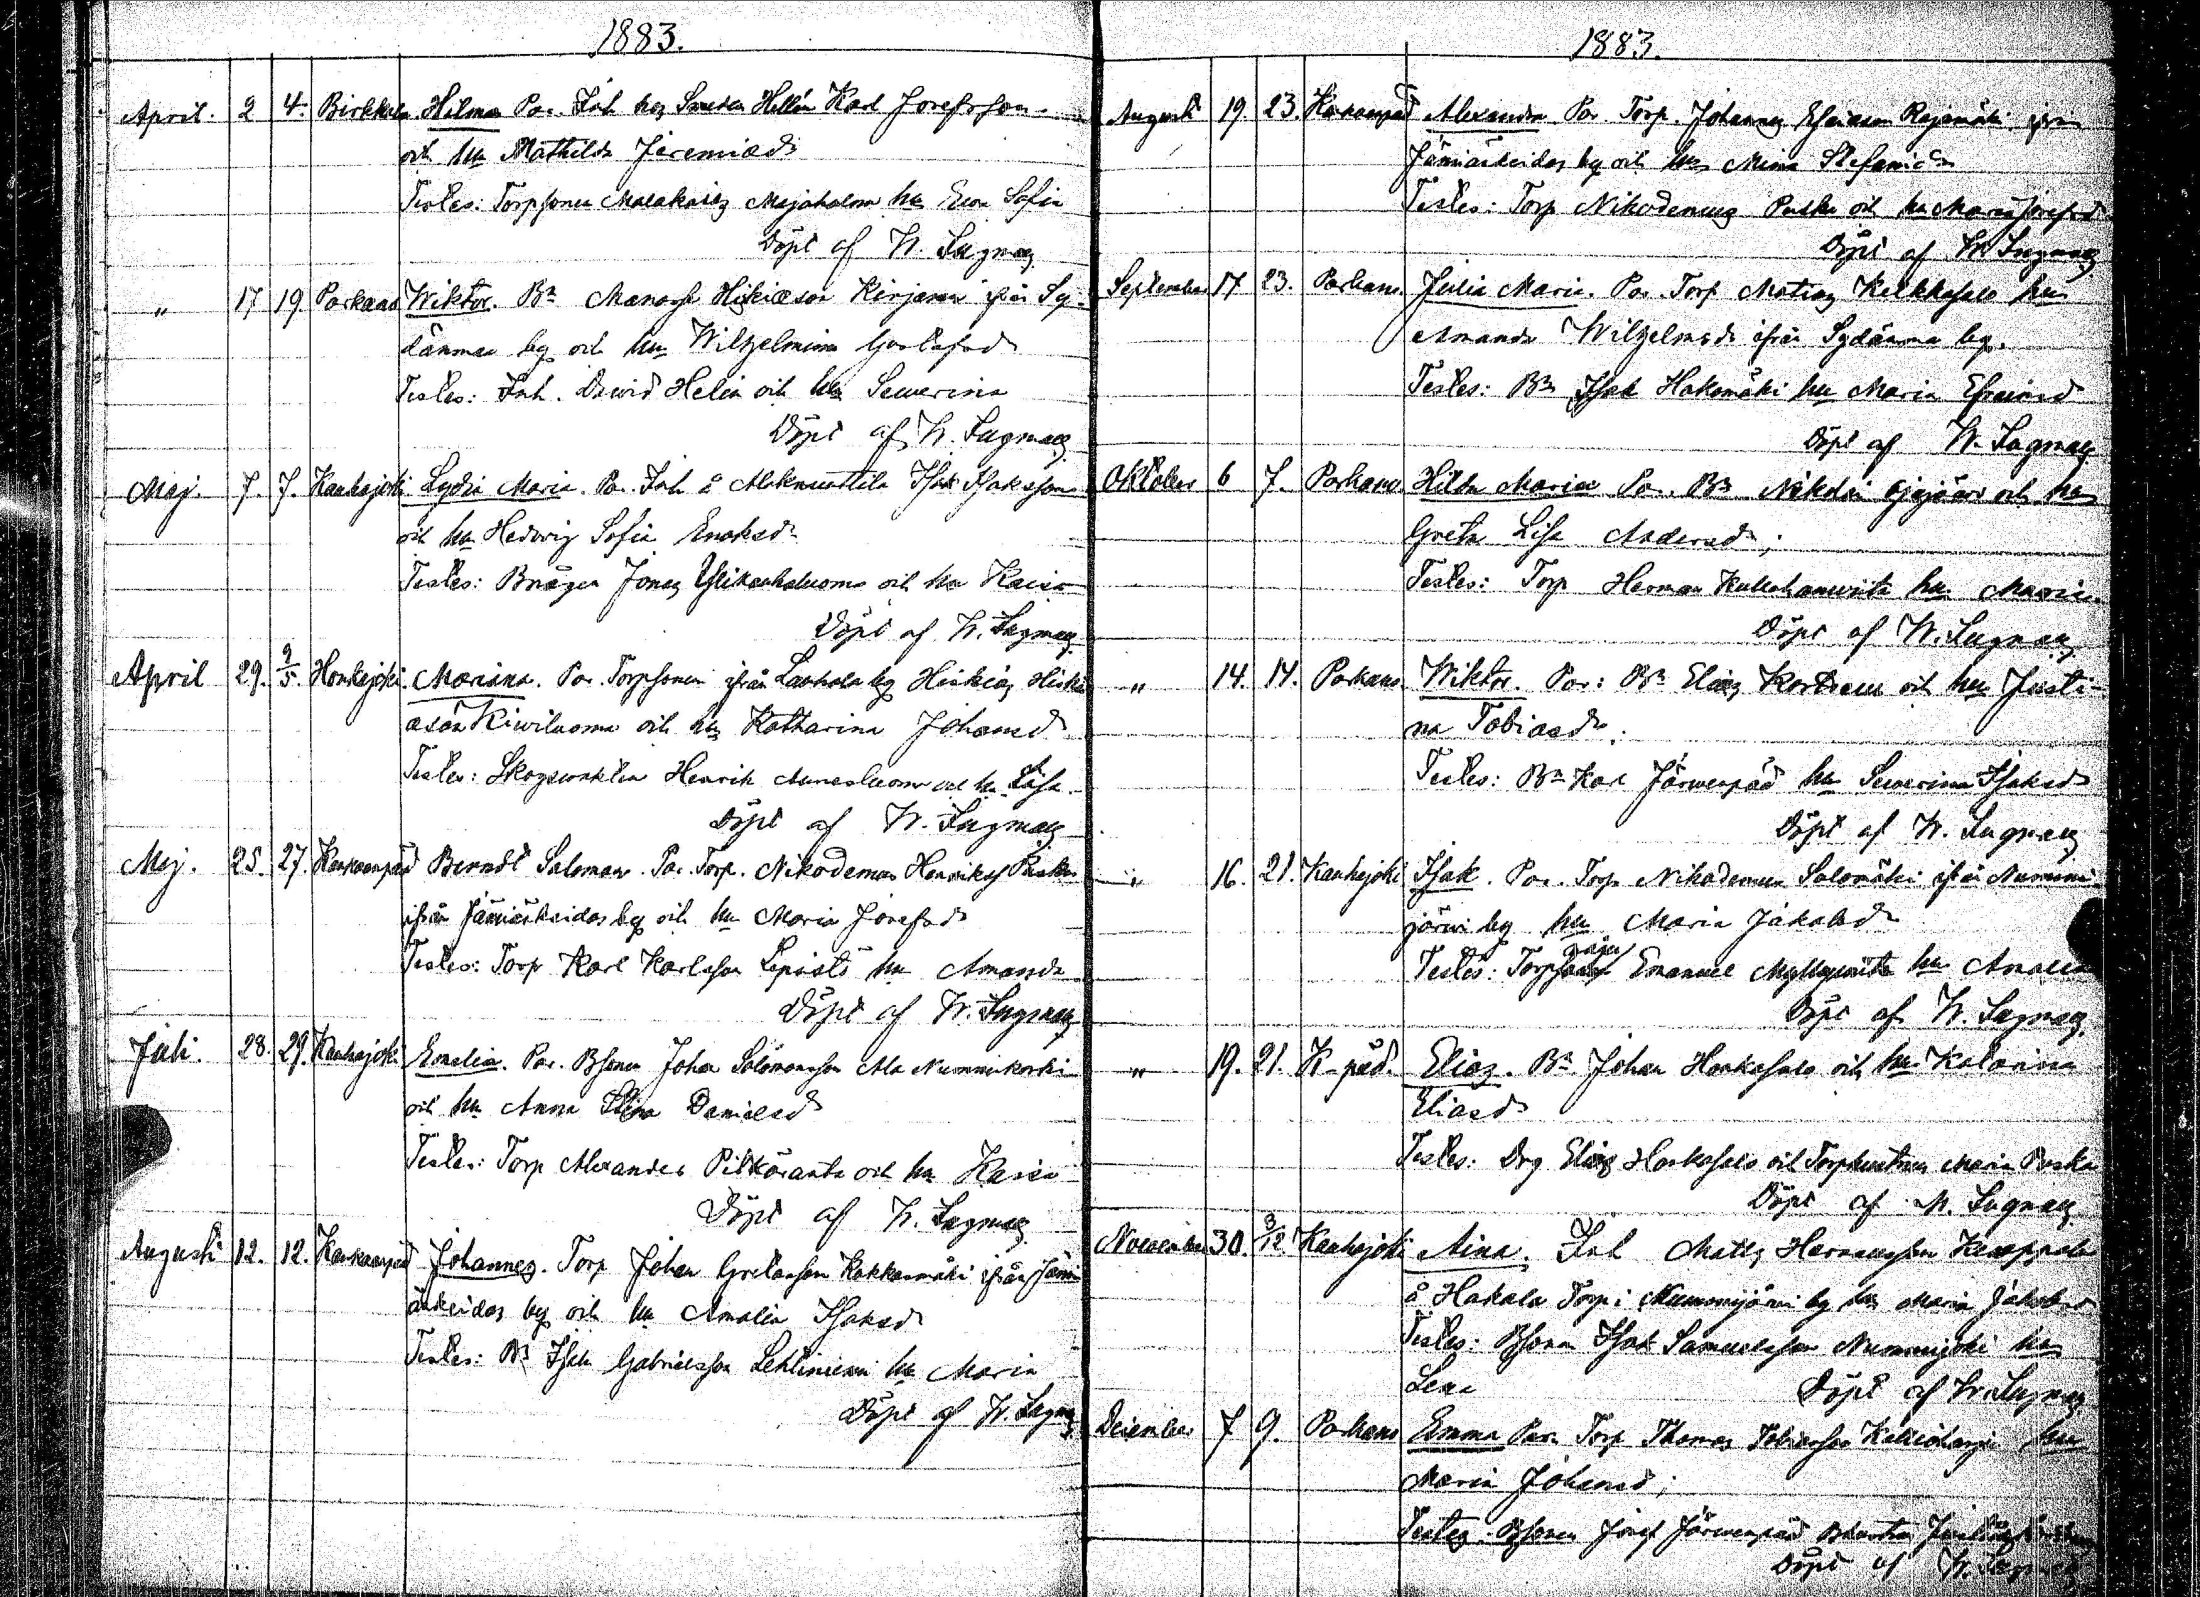 1883.
April. 2 4. Birkkala Hilma Par. Inh. hos Smeden Hellén Karl Josefsson
och hu Mathilda Jeremiadr
Testes: Torpsonen Malakias Majahalme hu Eva Sofia
Döpt af W. Lagmay
" 17 19. Parkano Wiktor. Bn Manasse Hiskiasson Kinjamo ifrån Sy-
dänmaa by och hu Wilhelmina Gustafsdr
Testes: Inh. David Helin och hu Severina
Döpt af W. Lagmay
Maj. 7. 7. Kauhajoki Lydia Maria. Par. Inh å Alaknuuttila Isak Isaksson
och hu Hedvig Sofia Enoksdr
Testes: Bnägen Jonas Ylikauhaluoma och hu Kaisa
Döpt af W. Lagmay
April 29. 9/5. Honkajoki. Mariana. Par. Torpsonen ifrån Lauhala by Hiskias Hiski
asson Kiwiluoma och hu Katharina Johansd
Testes: Skogsvaktaren Henrik Aunesluoma och hu Lisa.
Döpt af W. Lagmay
Maj. 25. 27. Kankaanpää Berndt Salomon. Par. Torp. Nikodemus Henrikss Puska
ifrån Jämiäskeidas by och hu Maria Josefsdr
Testes: Torp Karl Karlsson Lepistö hu Amanda
Döpt af W. Lagmay
Juli. 28. 29. Kauhajoki Emelia. Par. Bsonen Johan Salomonsson Ala Nummikoski
och hu Anna Stina Danielsd
Testes: Torp Alexander Pitkäranta och hu Kaisa
Döpt af W. Lagmay
Augusti 12. 12. Kankaanpää Johannes. Torp Johan Grelsson Kakkurmäki ifrån Jämi
äskeidas by och hu Amalia Isaksd
Testes: Bn Isak Gabrielsson Lehtiniemi hu Maria
Döpt af W. Lagmay
1883.
Augusti 19. 23. Kankaanpää Alexandra Par. Torp. Johannes Efraimsson Rajamäki ifrån
Jämiäskeidas by och hu Mina Stefansdr
Testes: Torp Nikodemus Puska och hu Maria Josefsd
Döpt af W. Lagmay
September 17 23. Parkano. Julia Maria. Par. Torp Matias Kelkkasalo hu
Amanda Wilhelmsdr ifrån Sydänmaa by.
Testes: Bn Isak Hakomäki hu Maria Efraimsd
Döpt af W. Lagmay
Oktober 6 7. Parkano Hilda Maria Par. Bn Nikolai och hu
Greta Lisa Andersdr;
Testes: Torp Herman hu Maria
Döpt af W. Lagmay
" 14. 14. Parkano Wiktor. Par: Bn Elias och hu Justi-
na Tobiasdr.
Testes: Bn Karl Järwenpää hu Severina Isaksd
Döpt af W. Lagmay
" 16. 21. Kauhajoki Isak. Par. Torp Nikodemus Salomäki ifrån Nummi-
järwi by hu Maria Jakobsdr
Testes: Torp Emanuel Myllyniita hu Amalia
Döpt af W. Lagmay
" 19. 21. K-pää. Elias. Bn Johan Honkasalo och hu Katarina
Eliasdr
Testes: Drg Elias Honkasalo och Torphustrun Maria Puska
Döpt af W. Lagmay
November 30. 3/12 Kauhajoki Aina. Inh Matts Hermansson Kamppala
å Hakala Torp i Nummijärwi by hu Maria Jakobsd
Testes: Bsonen Isak Samuelsson Nummijoki hu
Lena Döpt af W. Lagmay
December 7 9. Parkano Emma Par. Torp Thomas Tobiasson hu
Maria Johansd;
Testes: Bsonen Josef Järwenpää
Döpt af W. Lagmay